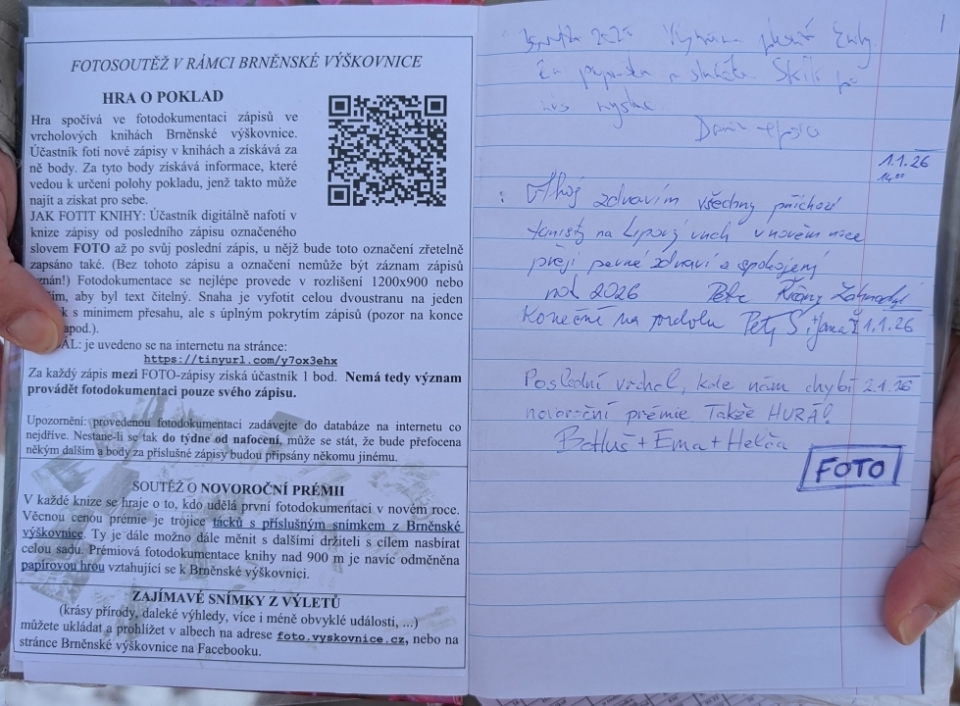 FOTOSOUTĚŽ V RÁMCI BRNĚNSKÉ VÝŠKOVNICE
HRA O POKLAD
Hra spočívá ve fotodokumentaci zápisů ve
vrcholových knihách Brněnské výškovnice.
Účastník fotí nové zápisy v knihách a získává za
ně body. Za tyto body získává informace, které
vedou k určení polohy pokladu, jenž takto může
najít a získat pro sebe.
JAK FOTIT KNIHY: Účastník digitálně nafotí v
knize zápisy od posledního zápisu označeného
slovem FOTO až po svůj poslední zápis, u nějž bude toto označení zřetelně
zapsáno také. (Bez tohoto zápisu a označení nemůže být záznam zápisů
znán!) Fotodokumentace se nejlépe provede v rozlišení 1200x900 nebo
ším, aby byl text čitelný. Snaha je vyfotit celou dvoustranu na jeden
k s minimem přesahu, ale s úplným pokrytím zápisů (pozor na konce
apod.).
ÁL: je uvedeno se na internetu na stránce:
https://tinyurl.com/y7ox3ehx
Za každý zápis mezi FOTO-zápisy získá účastník 1 bod. Nemá tedy význam
provádět fotodokumentaci pouze svého zápisu.
Upozornění: provedenou fotodokumentaci zadávejte do databáze na internetu co
nejdříve. Nestane-li se tak do týdne od nafocení, může se stát, že bude přefocena
někým dalším a body za příslušné zápisy budou připsány někomu jinému.
SOUTĚŽ O NOVOROČNÍ PRÉMII
V každé knize se hraje o to, kdo udělá první fotodokumentaci v novém roce.
Věcnou cenou prémie je trojice tácků s příslušným snímkem z Brněnské
výškovnice. Ty je dále možno dále měnit s dalšími držiteli s cílem nasbírat
celou sadu. Prémiová fotodokumentace knihy nad 900 m je navíc odměněna
papírovou hrou vztahující se k Brněnské výškovnici.
ZAJÍMAVÉ SNÍMKY Z VÝLETŮ
(krásy přírody, daleké výhledy, více i méně obvyklé události, ...)
můžete ukládat a prohlížet v albech na adrese foto.vyskovnice.cz, nebo na
stránce Brněnské výškovnice na Facebooku.
1
1.1.26
14⁰⁰
Ahoj zdravím všechny příchozí
turisty na Lipový vrch v novém roce
přeji pevné zdraví a spokojený
rok 2026 Petr
Konečně na vrcholu Petr Š 1.1.26
Poslední vrchol, kde nám chybí 2.1.26
novoroční prémie Takže HURÁ!
+ Ema + Helča
FOTO